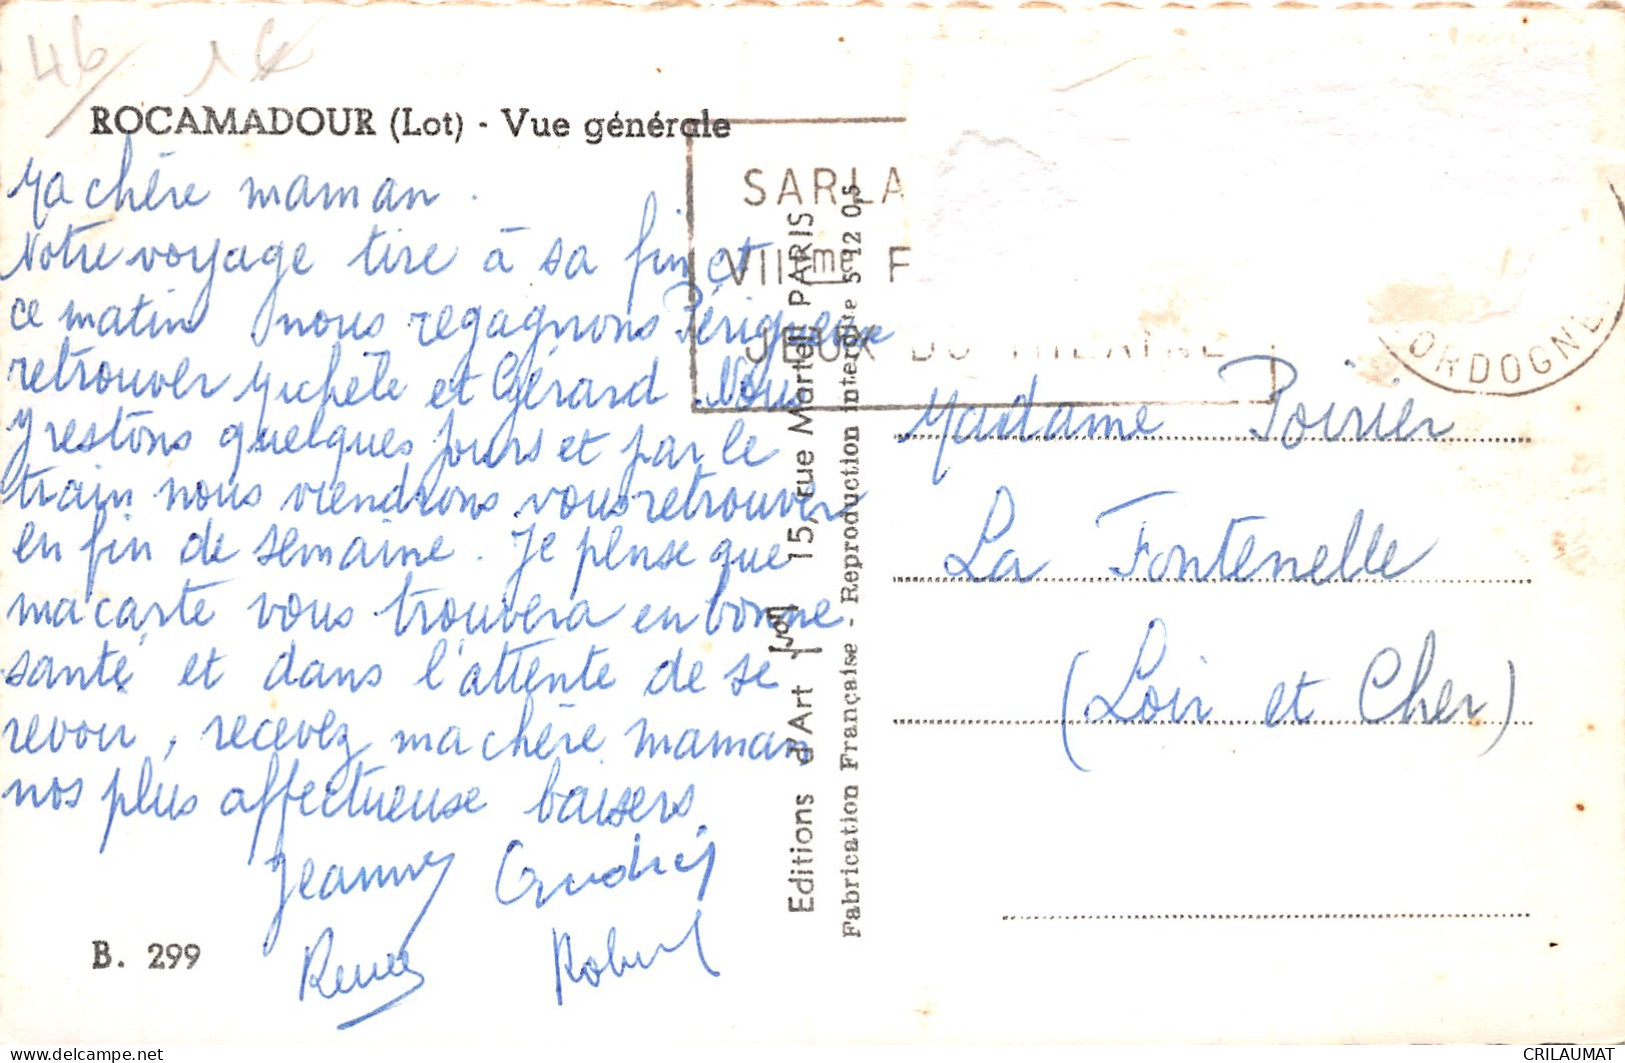 46 16
ROCAMADOUR (Lot) - Vue générale
Ma chère maman.
Notre voyage tire à sa fin et
ce matin nous regagnons Périgueux
retrouver Michèle et Gérard. Nous
y restons quelques jours et par le
train nous viendrons vous retrouver
en fin de semaine. Je pense que
ma carte vous trouvera en bonne
santé et dans l'attente de se
revoir, recevez ma chère maman
nos plus affectueuse baisers
Jeanny
Renée Robert
B. 299
Editions d'Art 15, rue Martel PARIS
Fabrication Française - Reproduction interdite 5 12 05
SARLA
VIIme F
JEUX DU THEATRE
ORDOGNE
Madame Poirier
La Fontenelle
(Loir et Cher)
delcampe.net
CRILAUMAT